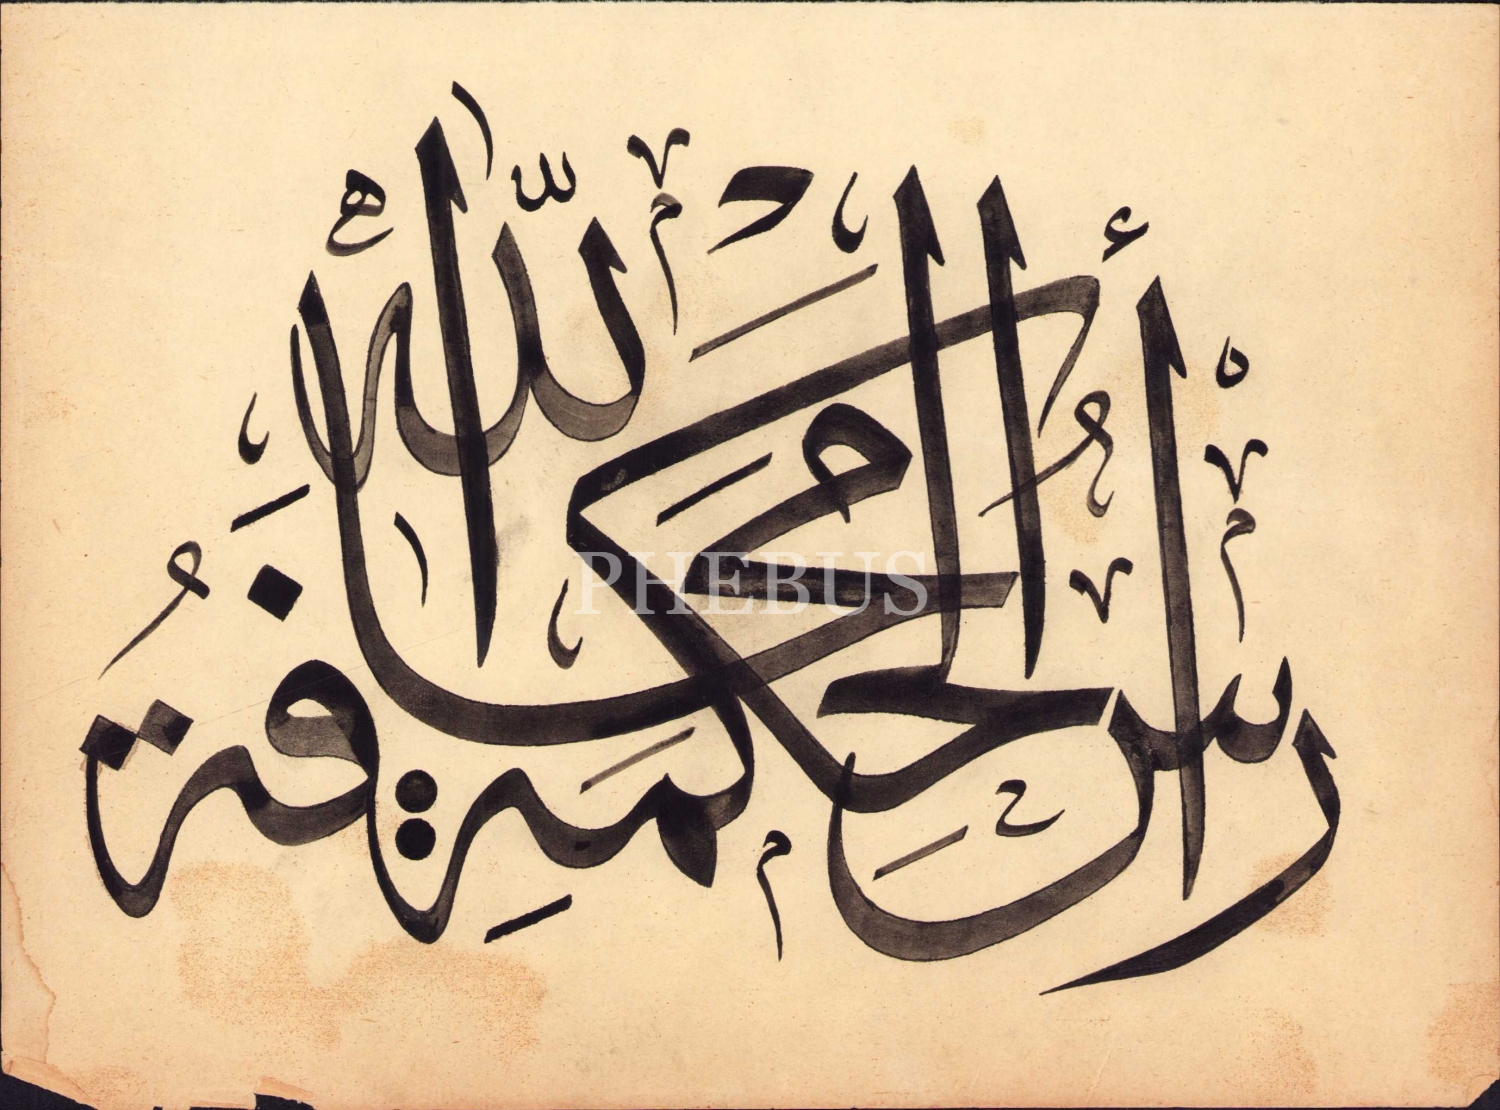 رَأْسُ الْحِكْمَةِ مَخَافَةُ اللّٰهِ
PHEBUS